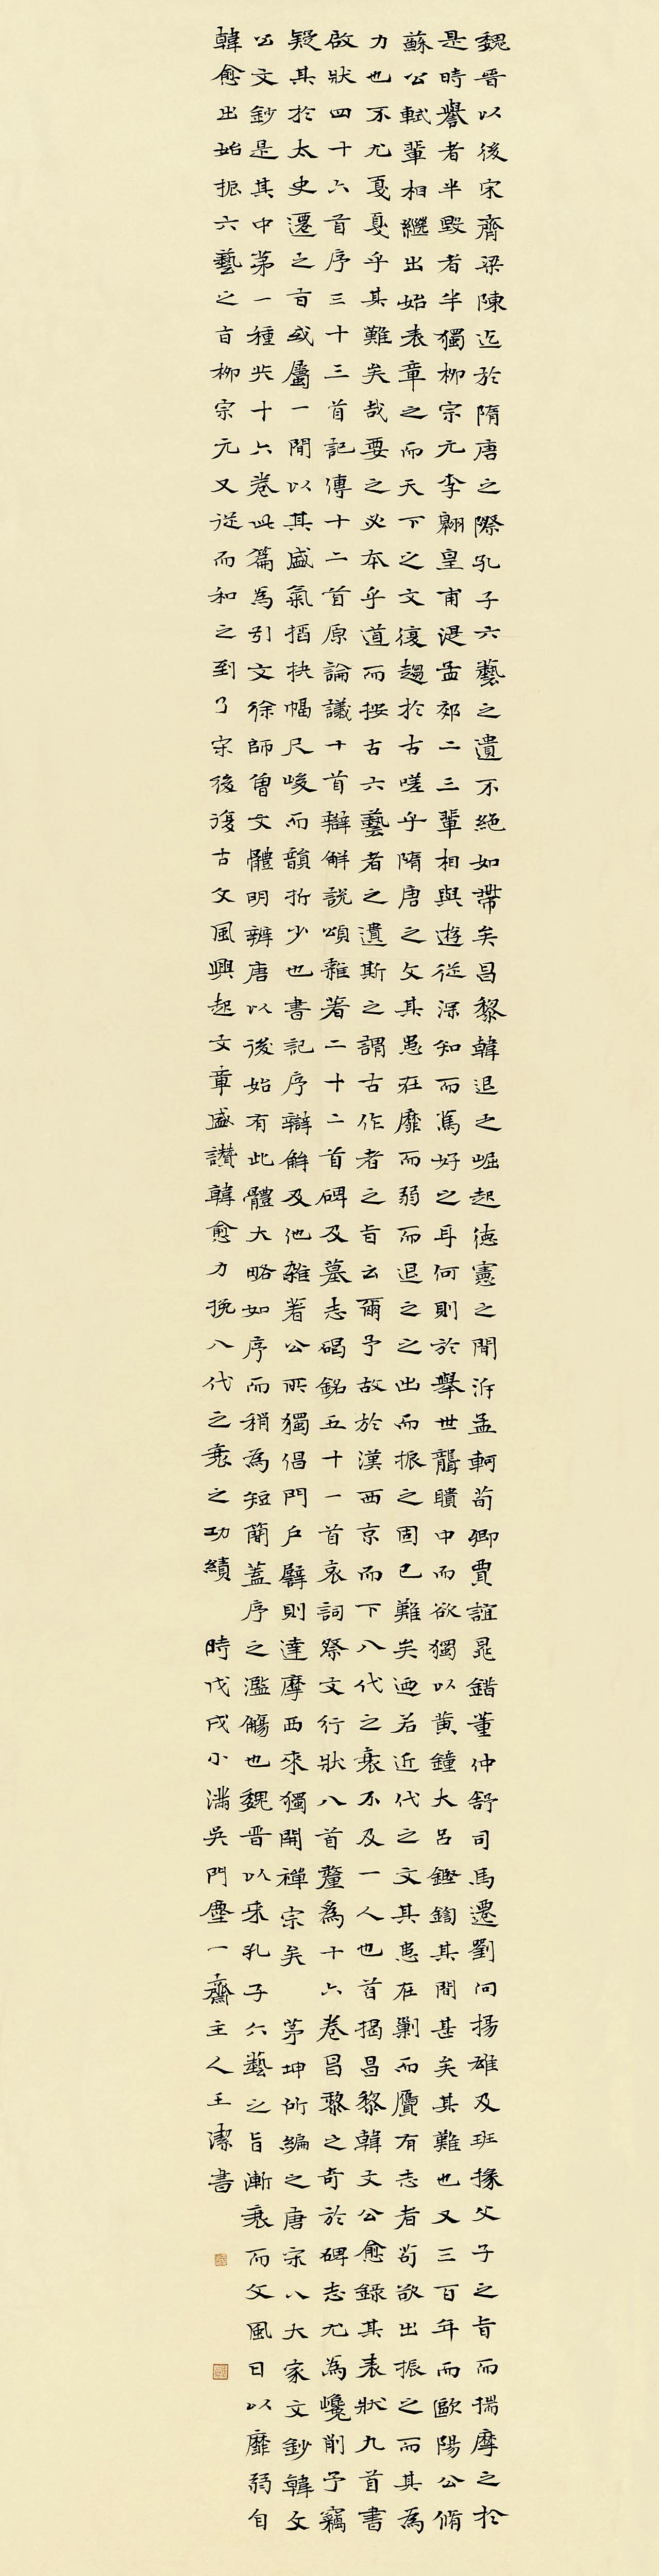 魏晉以後宋齊梁陳迄於隋唐之際孔子六藝之遺不絕如帶矣昌黎韓退之崛起德憲之間泝孟軻荀卿賈誼晁錯董仲舒司馬遷劉向揚雄及班掾父子之旨而揣摩之於
是時譽者半毀者半獨柳宗元李翱皇甫湜孟郊二三輩相與遊從深知而篤好之耳何則於舉世聾聵中而欲獨以黃鐘大呂鏗鍧其間甚矣其難也又三百年而歐陽公脩
蘇公軾輩相繼出始表章之而天下之文復趨於古嗟乎隋唐之文其患在靡而弱而退之之出而振之固已難矣迺若近代之文其患在剿而贗有志者苟欲出振之而其為
力也不尤戛戛乎其難矣哉要之必本乎道而按古六藝者之遺斯之謂古作者之旨云爾予故於漢西京而下八代之衰不及一人也首揭昌黎韓文公愈錄其表狀九首書
啟狀四十六首序三十三首記傳十二首原論議十首辯解說頌雜著二十二首碑及墓志碣銘五十一首哀詞祭文行狀八首釐為十六卷昌黎之奇於碑志尤為巉削予竊
疑其於太史遷之旨或屬一間以其盛氣搯抉幅尺峻而韻折少也書記序辯解及他雜著公所獨倡門戶譬則達摩西來獨開禪宗矣 茅坤所編之唐宋八大家文鈔韓文
公文鈔是其中第一種共十六卷此篇為引文徐師曾文體明辨唐以後始有此體大略如序而稍為短簡蓋序之濫觴也魏晉以來孔子六藝之旨漸衰而文風日以靡弱自
韓愈出始振六藝之旨柳宗元又從而和之到了宋後復古文風興起文章盛讚韓愈力挽八代之衰之功績 時戊戌小滿吳門塵一齋主人王潔書